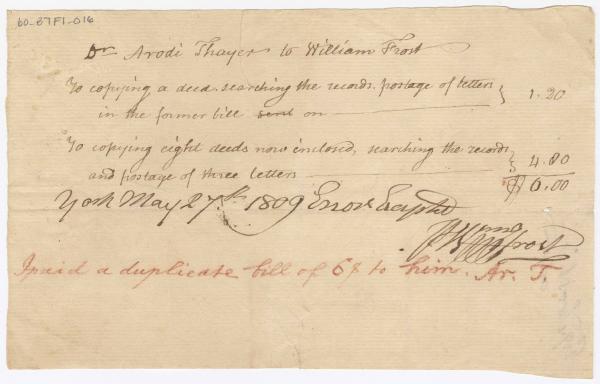 60-87F1-016
Dr Arodi Thayer to William Frost
To copying a deed searching the records, postage of letters
in the former bill sent on
1.20
To copying eight deeds now enclosed, searching the records
and postage of three letters
4.80
$6.00
York May 27th 1809 Errors Excepted
Wm Frost
I paid a duplicate bill of 6$ to him. Ar. T.